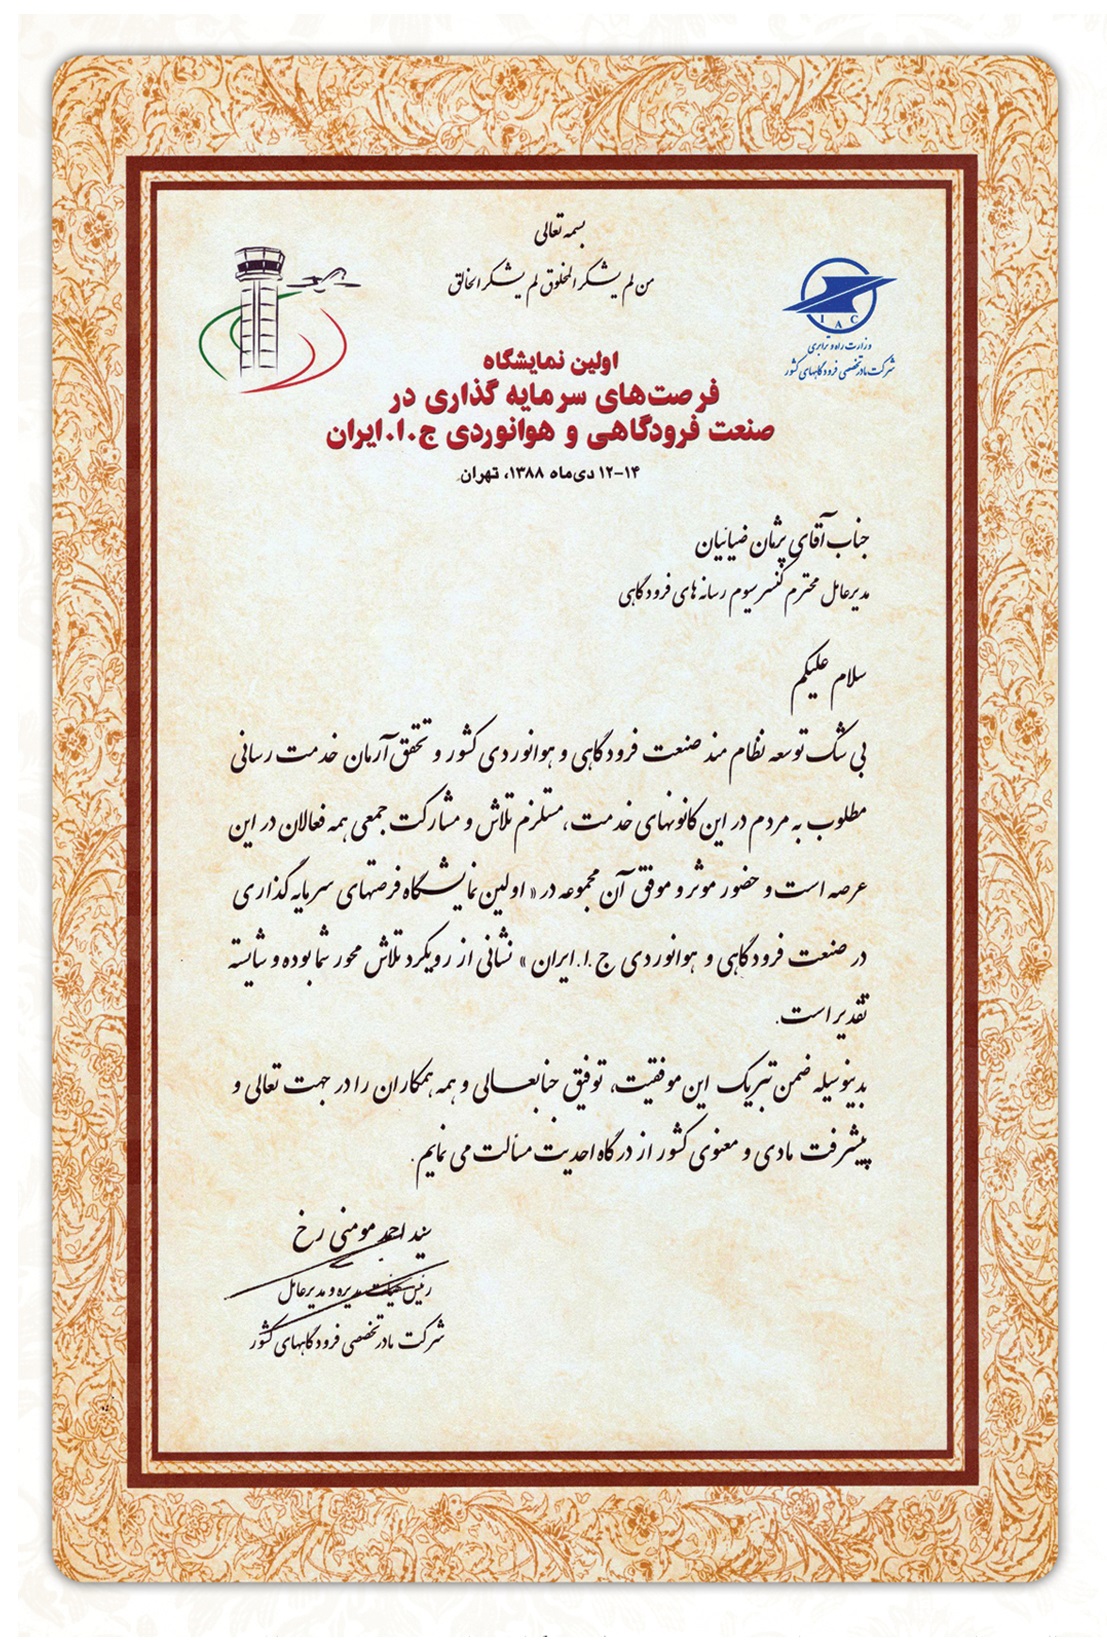 بسمه تعالی
من لم یشکر المخلوق لم یشکر الخالق
IAC
وزارت راه و ترابری
شرکت مادر تخصصی فرودگاههای کشور
اولین نمایشگاه
فرصت‌های سرمایه گذاری در
صنعت فرودگاهی و هوانوردی ج.ا.ایران
۱۲-۱۴ دی‌ماه ۱۳۸۸، تهران
جناب آقای پژمان ضیائیان
مدیرعامل محترم کنسرسیوم رسانه های فرودگاهی
سلام علیکم
بی شک توسعه نظام مند صنعت فرودگاهی و هوانوردی کشور و تحقق آرمان خدمت رسانی
مطلوب به مردم در این کانونهای خدمت، مستلزم تلاش و مشارکت جمعی همه فعالان در این
عرصه است و حضور موثر و موفق آن مجموعه در « اولین نمایشگاه فرصتهای سرمایه گذاری
در صنعت فرودگاهی و هوانوردی ج.ا.ایران » نشانی از رویکرد تلاش محور شما بوده و شایسته
تقدیر است.
بدینوسیله ضمن تبریک این موفقیت، توفیق جنابعالی و همه همکاران را در جهت تعالی و
پیشرفت مادی و معنوی کشور از درگاه احدیت مسألت می نمایم.
سید احمد مومنی رخ
رئیس هیئت مدیره و مدیرعامل
شرکت مادر تخصصی فرودگاههای کشور